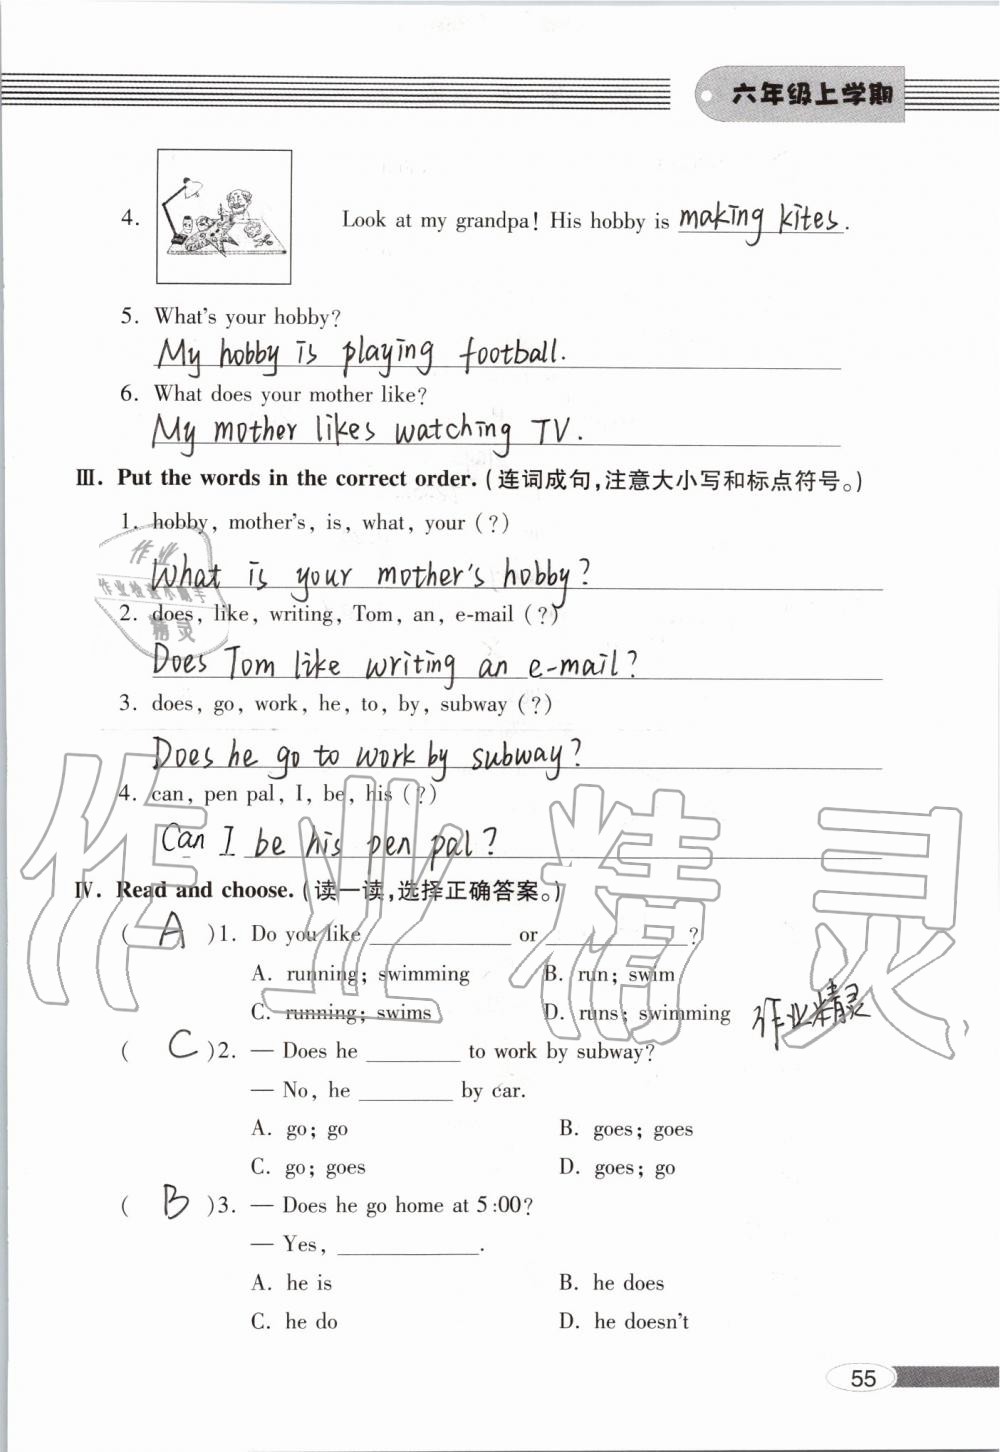 六年级上学期
4. Look at my grandpa! His hobby is making kites.
5. What's your hobby?
My hobby is playing football.
6. What does your mother like?
My mother likes watching TV.
Ⅲ. Put the words in the correct order. (连词成句,注意大小写和标点符号。)
1. hobby, mother's, is, what, your (?)
作业
作业检查小帮手
精灵
What is your mother's hobby?
2. does, like, writing, Tom, an, e-mail (?)
Does Tom like writing an e-mail?
3. does, go, work, he, to, by, subway (?)
Does he go to work by subway?
4. can, pen pal, I, be, his (?)
Can I be his pen pal?
作业精灵
Ⅳ. Read and choose. (读一读,选择正确答案。)
( A )1. Do you like ______ or ______?
A. running; swimming B. run; swim
C. running; swims D. runs; swimming
作业精灵
( C )2. — Does he ______ to work by subway?
— No, he ______ by car.
A. go; go B. goes; goes
C. go; goes D. goes; go
( B )3. — Does he go home at 5:00?
— Yes, ______.
A. he is B. he does
C. he do D. he doesn't
55